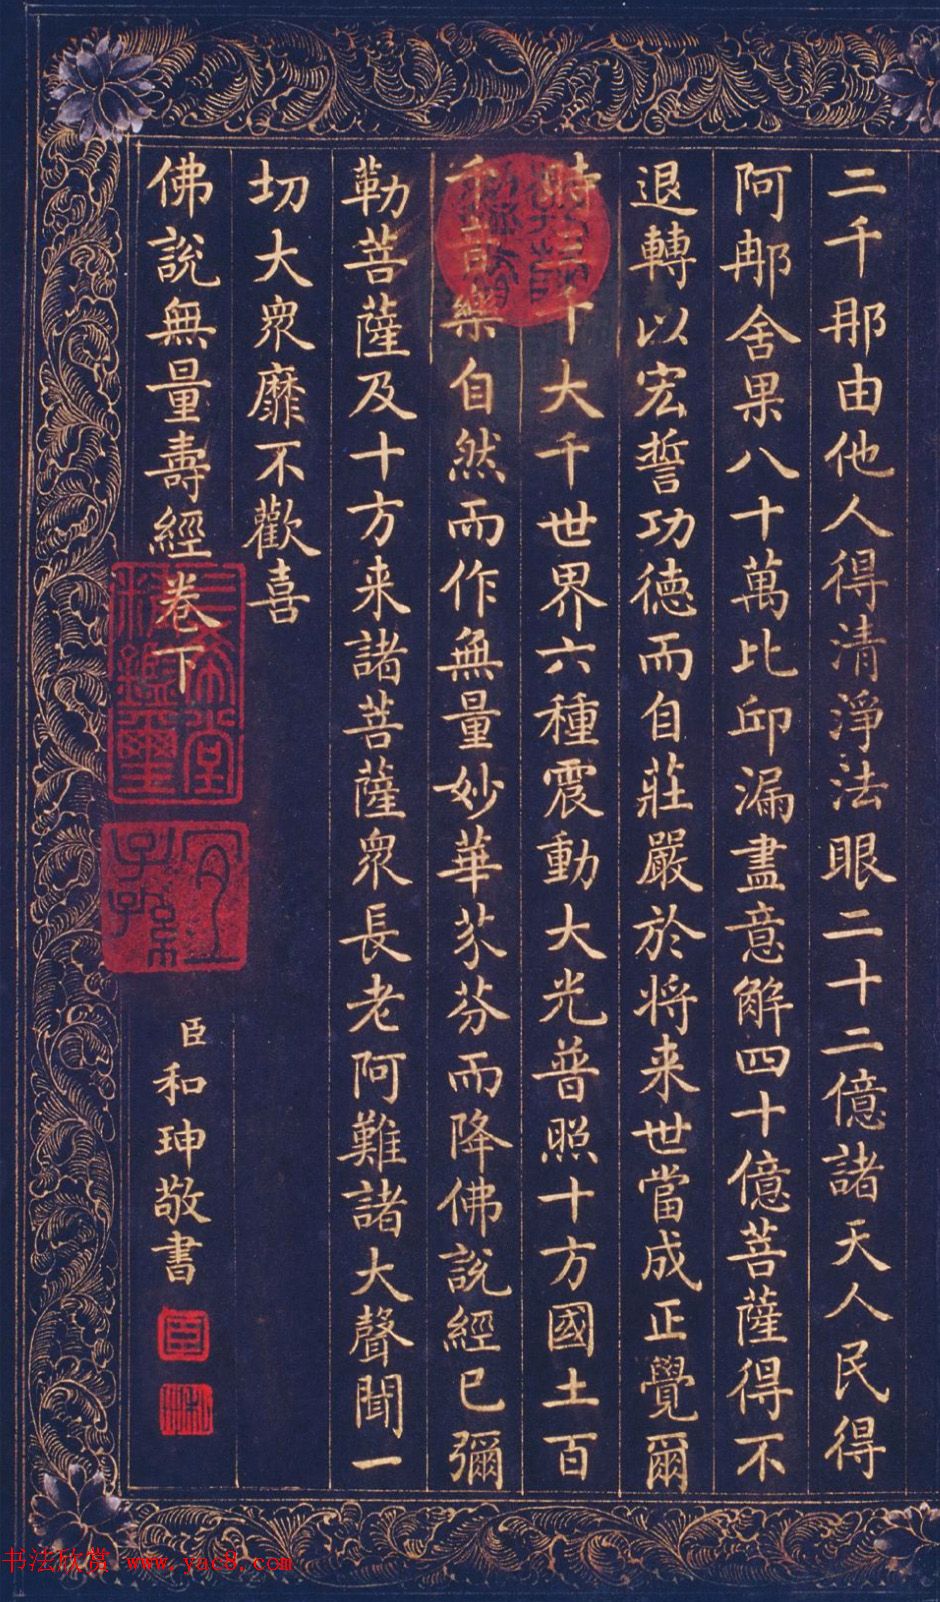 二千那由他人得清淨法眼二十二億諸天人民得
阿那舍果八十萬比邱漏盡意解四十億菩薩得不
退轉以宏誓功德而自莊嚴於將来世當成正覺爾
時三千大千世界六種震動大光普照十方國土百
千音樂自然而作無量妙華芬芬而降佛說經已彌
勒菩薩及十方来諸菩薩衆長老阿難諸大聲聞一
切大衆靡不歡喜
佛說無量壽經卷下
臣和珅敬書
三希堂精鑑璽
宜子孫
臣
和
书法欣赏 www.yac8.com